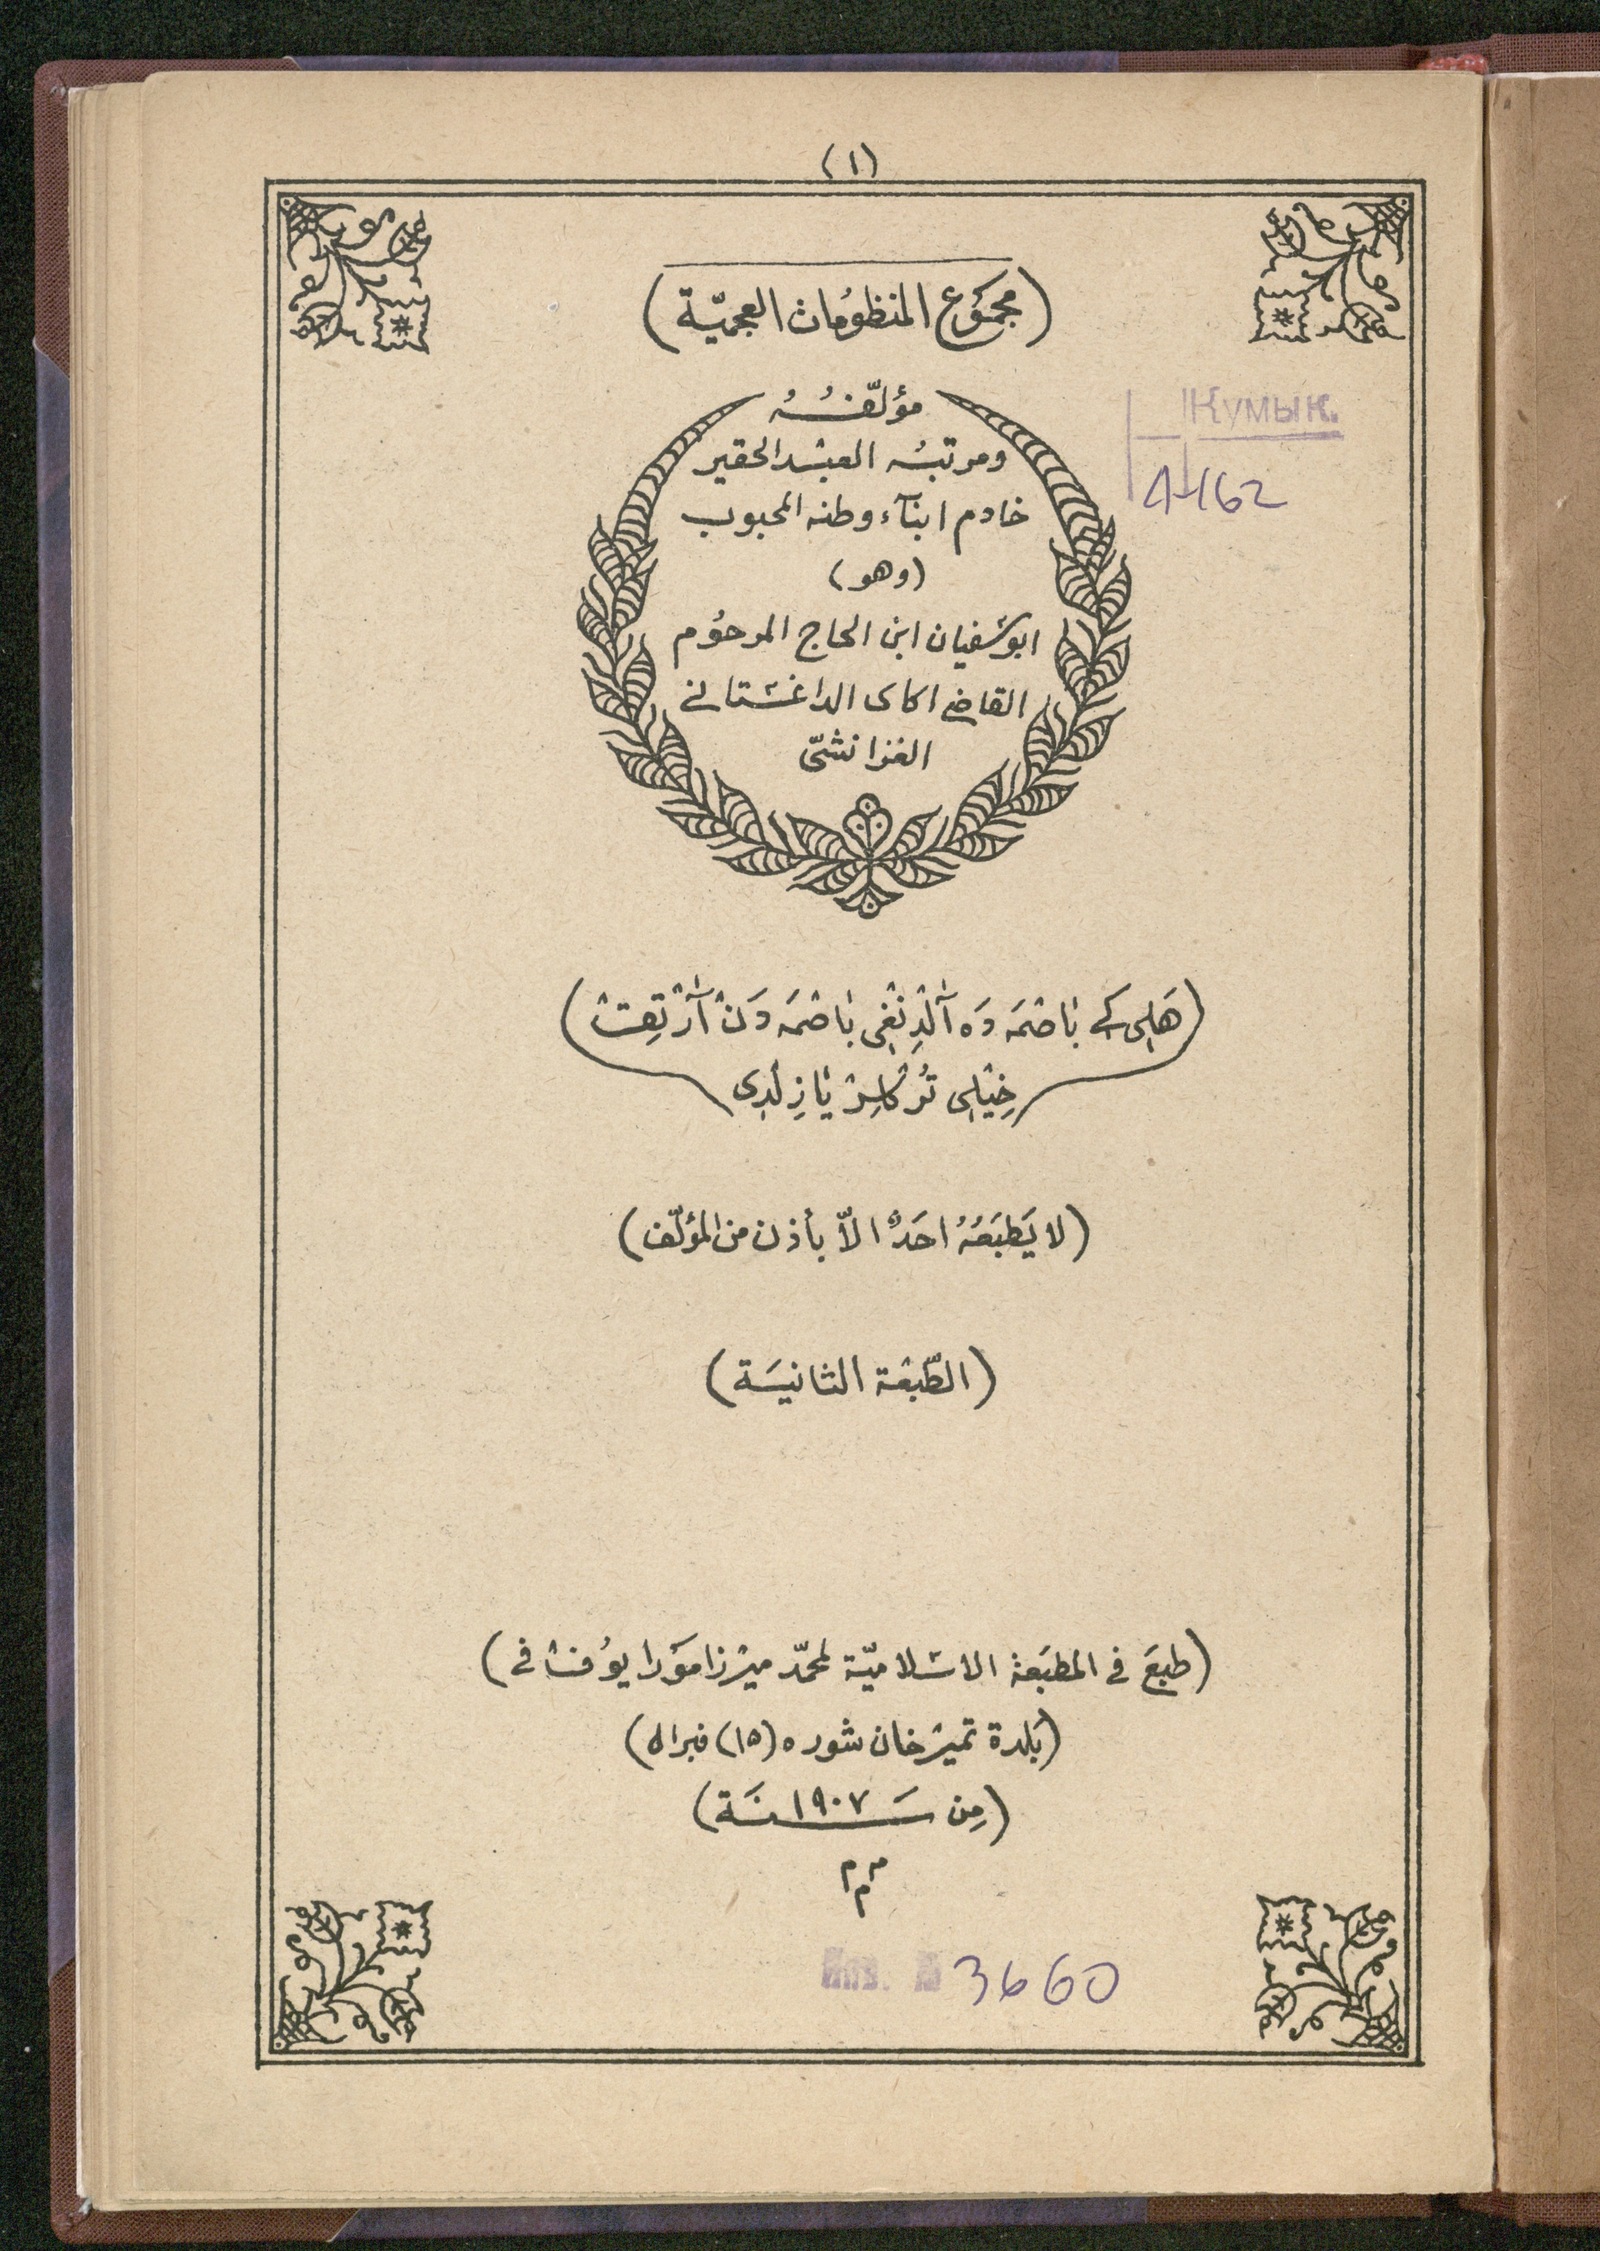 (١)
(مجموع المنظومات العجميّة)
مؤلّفُهُ
ومرتبه العبد الحقير
خادم ابنآء وطنه المحبوب
(وهو)
ابو سفيان ابن الحاج المرحوم
القاضى اكاى الداغستانى
الغزانشىّ
Кумык.
4-162
(هَلِى كِے بَاصْمَه دَه آلْدِنْغِى بَاصْمَه دَنْ آرْتِقْ
خِيْلِى تُرْكْلِرْ يَازِلْدِى)
(لا يَطبَعُهُ احَدٌ الاّ بأذن من المؤلّف)
(الطّبْعة الثانيَة)
(طبعَ فى المطبَعة الاسْلاميّة لمحمّد ميْرزا مَوْرايوُف فى)
(بَلدة تميْرخان شوره (١٥) فبرال)
(مِن سَـنَة ١٩٠٧)
م م م
Инв. № 3660